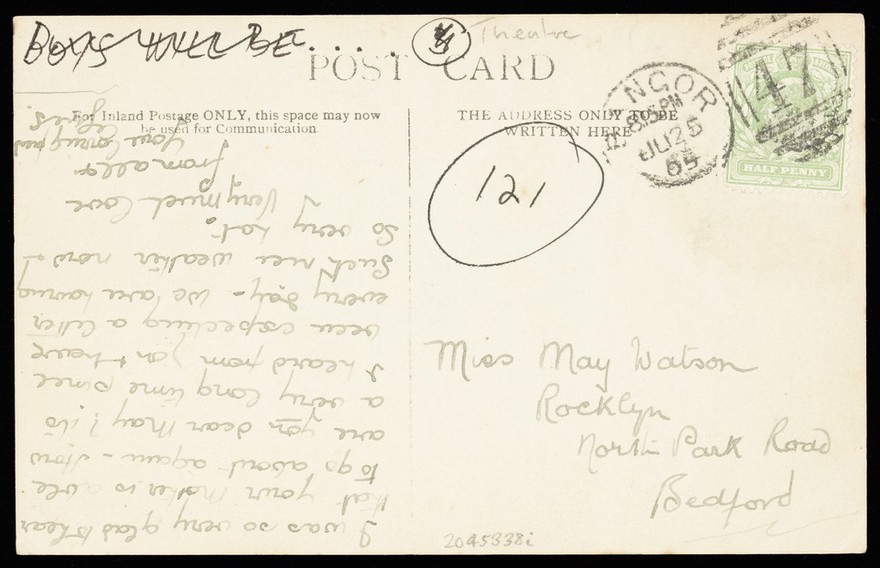 BOYS WILL BE.....
Theatre
POST CARD
For Inland Postage ONLY, this space may now
be used for Communication.
THE ADDRESS ONLY TO BE
WRITTEN HERE
NGOR
8.15 PM
JU 25
05
47
HALF PENNY
121
Miss May Watson
Rocklyn
North Park Road
Bedford
I was so very glad to hear
that your Mother is able
to go about again - How
are you dear May? it's
a very long time since
I heard from you & have
been expecting a letter
every day - We are having
such nice weather now &
so very hot.
Very much love
from all &
Your loving friend
2045338i